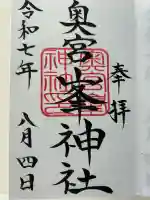 奉拝
奥宮峯神社
令和七年 八月四日